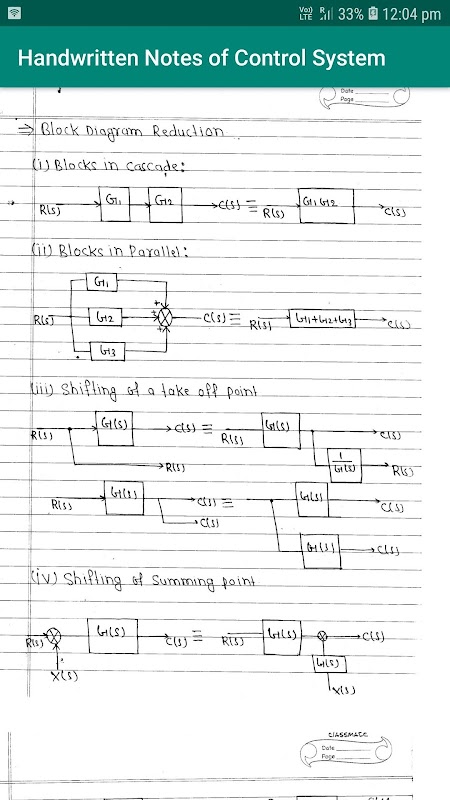 Vo)) LTE R 33% 12:04 pm
Handwritten Notes of Control System
Date
Page
⇒ Block Diagram Reduction
(i) Blocks in Cascade:
R(s) G1 G2 C(s) ≡ R(s) G1 G2 C(s)
(ii) Blocks in Parallel:
G1
R(s) G2 + + + C(s) ≡ R(s) G1+G2+G3 C(s)
G3
(iii) Shifting of a take off point
R(s) G(s) C(s) ≡ R(s) G(s) C(s)
R(s) 1/G(s) R(s)
R(s) G(s) C(s) ≡ G(s) C(s)
C(s)
G(s) C(s)
(iv) Shifting of Summing point
R(s) G(s) C(s) ≡ R(s) G(s) C(s)
+ G(s)
X(s) X(s)
CLASSMATE
Date
Page